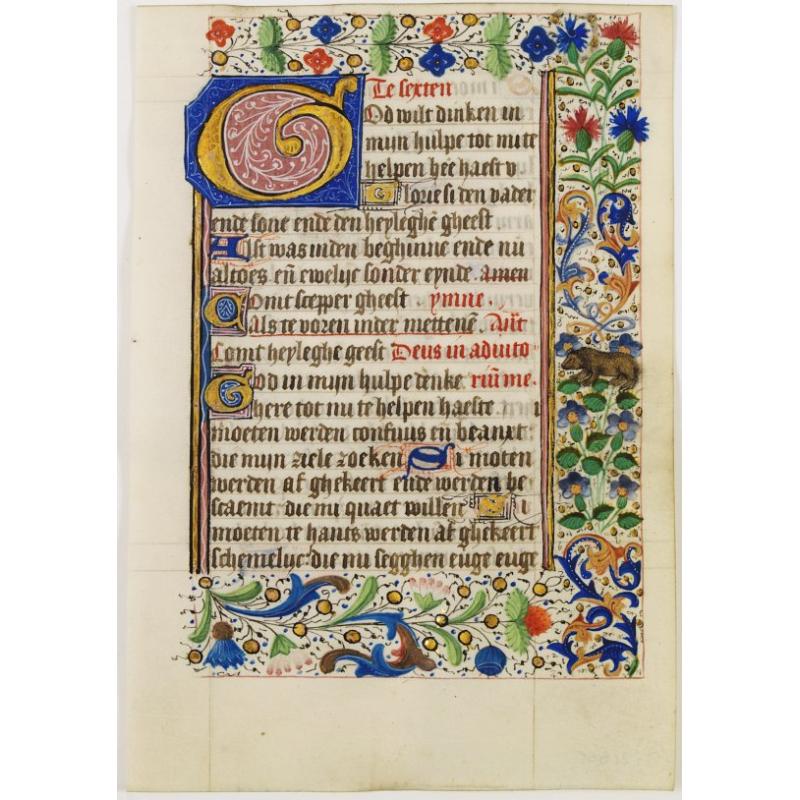 Te sexten
God wilt dinken in
mijn hulpe tot mi te
helpen heē haest v
Glorie si den vader
ende sone ende den heyleghē gheest
Alst was inden beghinne ende nū
altoes eñ ewelijc sonder eynde. amen
Comt scepper gheest. ymne.
Als te voren inder mettenē. Añt
Comt heyleghe geest Deus in adiuto
God in mijn hulpe dēnke. riū me.
here tot mi te helpen haeste. i
moeten werden confuus eñ beanxt:
die mijn ziele zoeken Si moten
werden af ghekeert ende werden be
scaemt: die mi quaet willen i
moeten te hants werden af ghekeert
schemelijc: die mi segghen euge euge